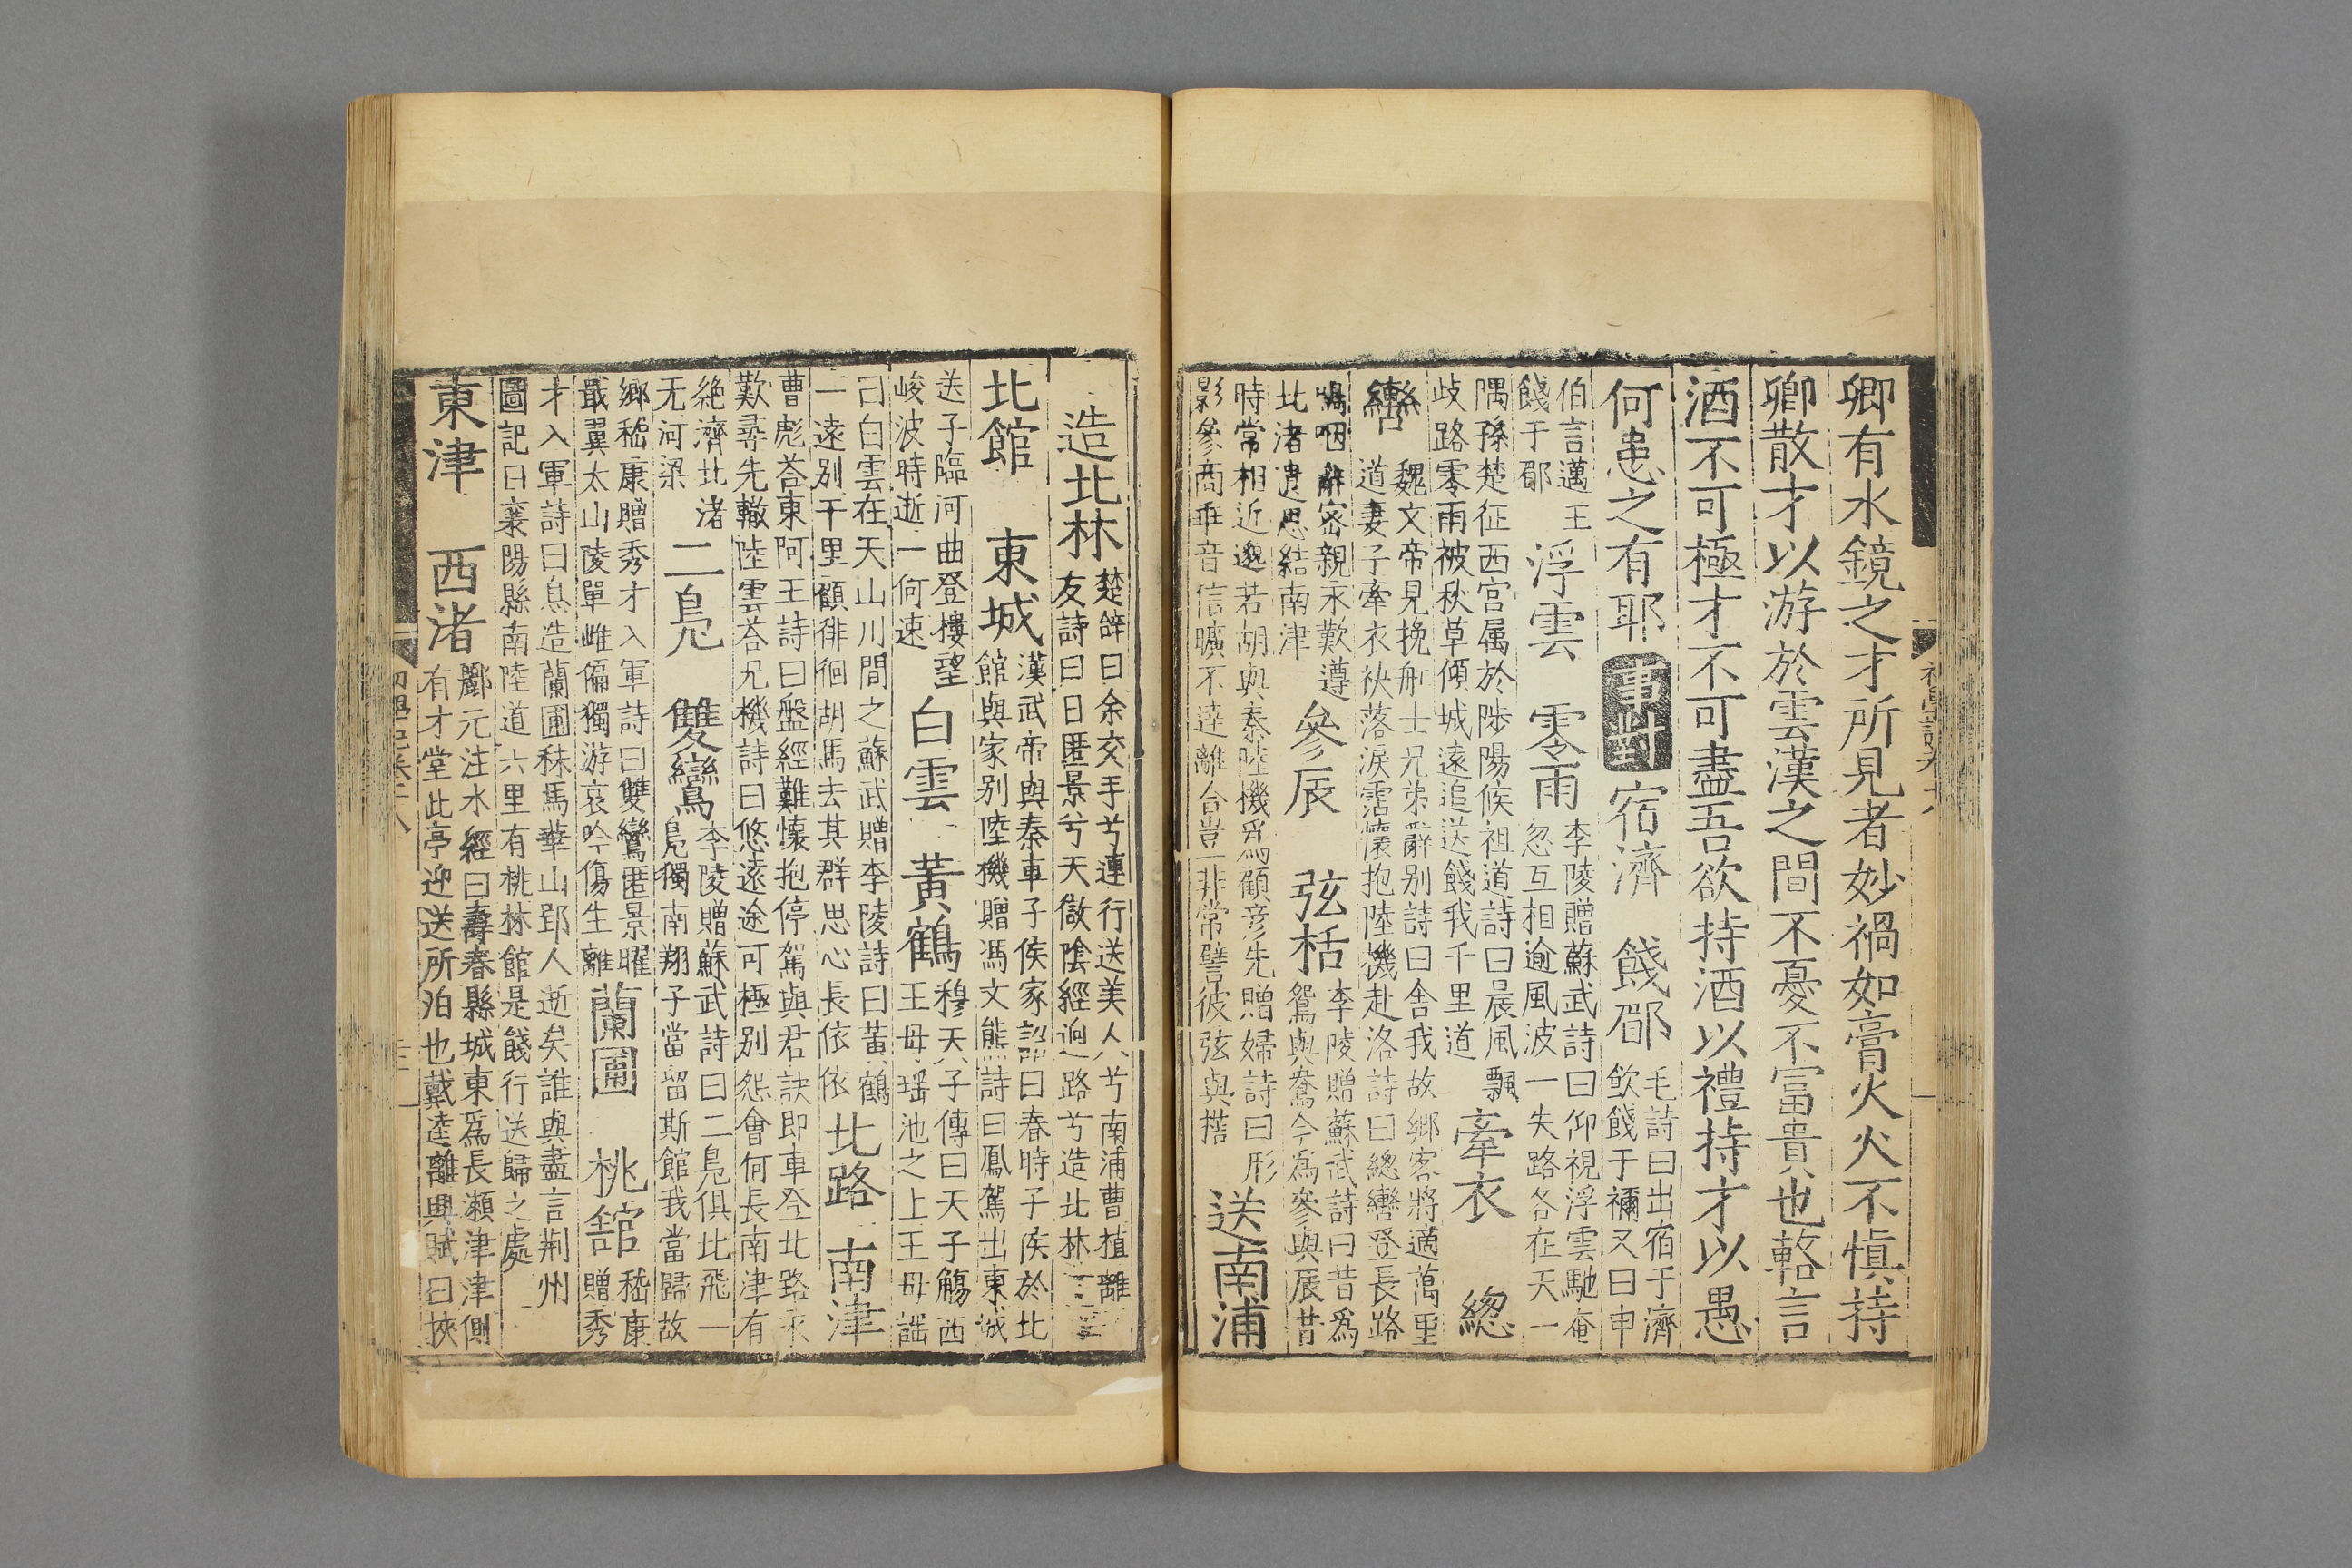 卿有水鏡之才所見者妙禍如膏火火不慎持
卿散才以游於雲漢之間不憂不富貴也輅言
酒不可極才不可盡吾欲持酒以禮持才以愚
何患之有耶 事對 宿濟 餞郿 毛詩曰出宿于濟
飲餞于禰又曰申
伯言邁王
餞于郿 浮雲 零雨 李陵贈蘇武詩曰仰視浮雲馳奄
忽互相逾風波一失路各在天一
隅孫楚征西官属於陟陽候祖道詩曰晨風飄
歧路零雨被秋草傾城遠追送餞我千里道 牽衣 緫
轡 魏文帝見挽舡士兄弟辭别詩曰舍我故鄉客將適萬里
道妻子牽衣袂落淚霑懷抱陸機赴洛詩曰緫轡登長路
嗚咽辭密親永歎遵
北渚遺思結南津 參辰 弦栝 李陵贈蘇武詩曰昔爲
鴛與鴦今爲參與辰昔
時常相近邈若胡與秦陸機爲顧彦先贈婦詩曰形
影參商乖音信曠不逹離合豈非常譬彼弦與栝 送南浦
造北林 楚辭曰余交手兮連行送美人兮南浦曹植離
友詩曰日匿景兮天㣲陰經逈路兮造北林
北館 東城 漢武帝與秦車子侯家詔曰春時子侯於北
館與家别陸機贈馮文熊詩曰鳳駕出東城
送子臨河曲登樓望
峻波時逝一何速 白雲 黃鶴 穆天子傳曰天子觴西
王母瑶池之上王母謡
曰白雲在天山川間之蘇武贈李陵詩曰黃鶴
一遠别千里顧徘徊胡馬去其群思心長依依 北路 南津
曹彪荅東阿王詩曰盤經難懷抱停駕與君訣即車登北路永
歎尋先轍陸雲荅兄機詩曰悠遠途可極别怨會何長南津有
絶濟北渚
无河梁 二鳧 雙鸞 李陵贈蘇武詩曰二鳧俱北飛一
鳧獨南翔子當留斯館我當歸故
鄉嵇康贈秀才入軍詩曰雙鸞匿景曜
戢翼太山陵單雌偏獨游哀吟傷生離 蘭圃 桃舘 嵇康
贈秀
才入軍詩曰息造蘭圃秣馬華山郢人逝矣誰與盡言荆州
圖記曰襄陽縣南陸道六里有桃林館是餞行送歸之處
東津 西渚 酈元注水經曰壽春縣城東爲長瀬津津側
有才堂此亭迎送所泊也戴逵離興賦曰挾